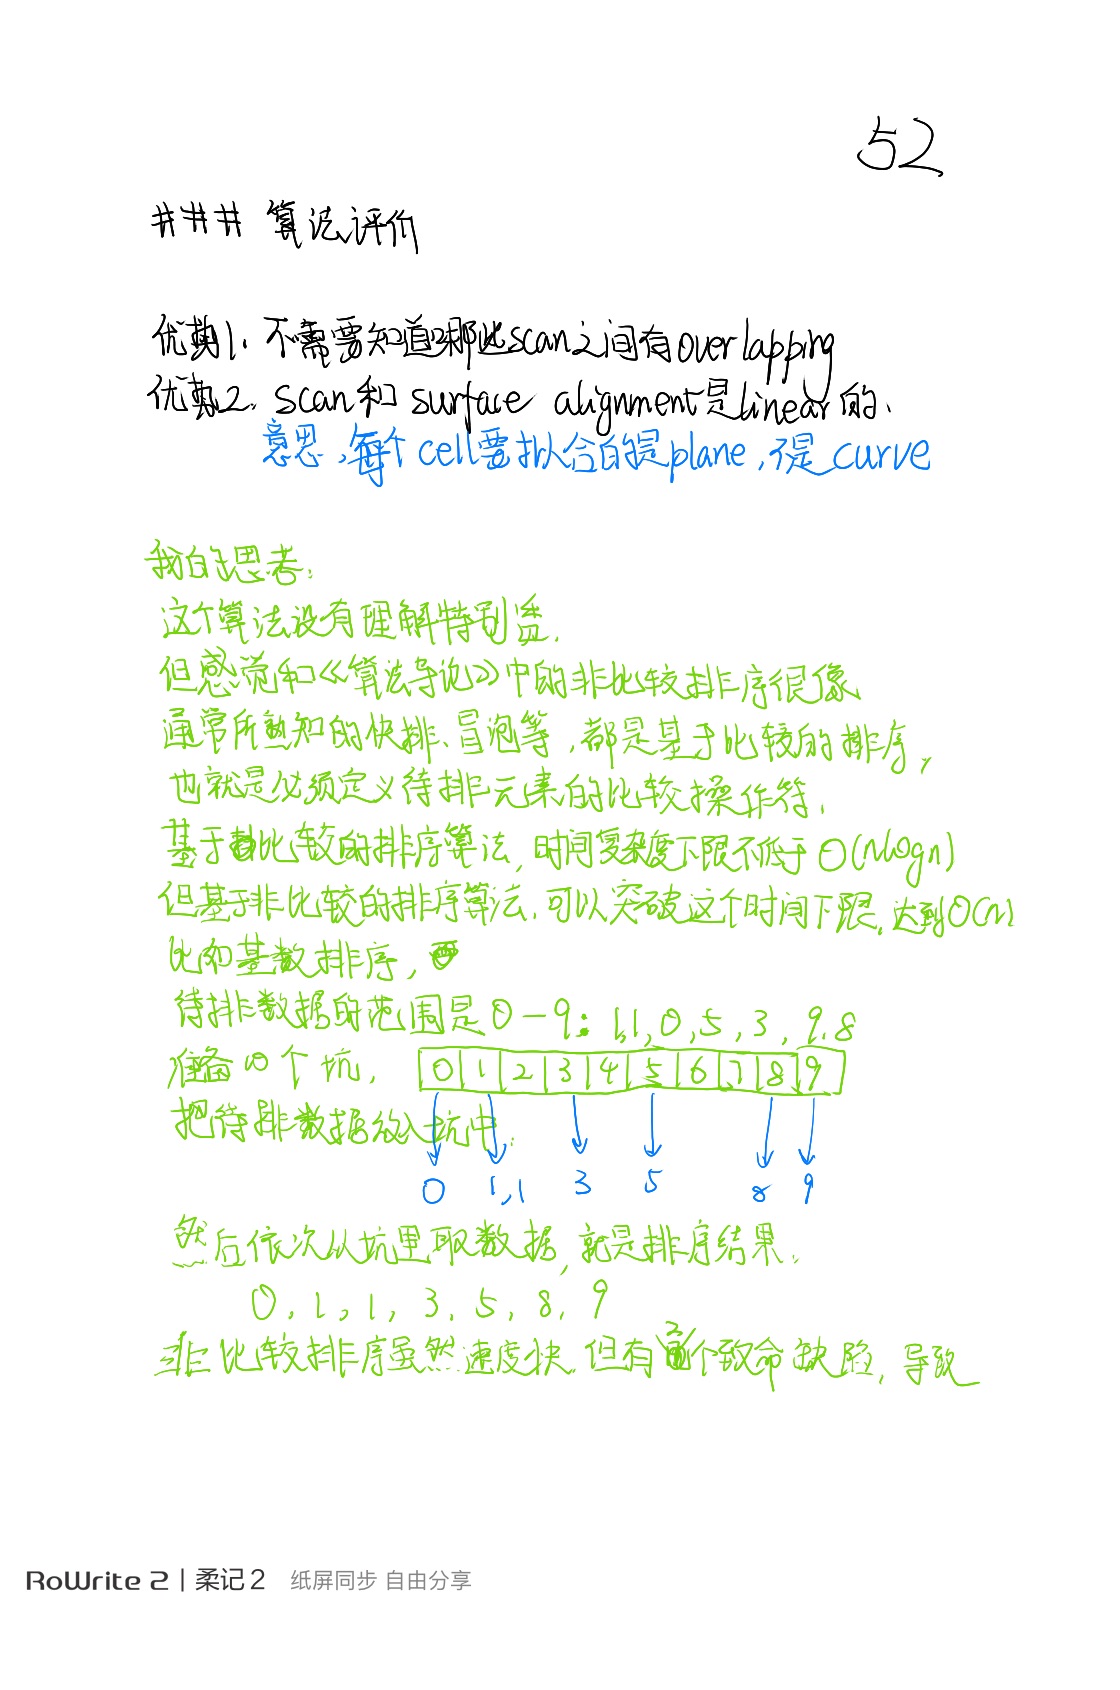 52
### 算法评价
优势1、不需要知道哪些scan之间有overlapping
优势2、scan和surface alignment是linear的、
意思,每个cell要拟合的是plane,不是curve
我的思考:
这个算法没有理解特别透.
但感觉和《算法导论》中的非比较排序很像
通常所熟知的快排、冒泡等,都是基于比较的排序,
也就是必须定义待排元素的比较操作符.
基于比较的排序算法,时间复杂度下限不低于O(nlogn)
但基于非比较的排序算法,可以突破这个时间下限,达到O(n)
比如基数排序,
待排数据的范围是0-9: 1,1,0,5,3,9,8
准备10个坑,
0 1 2 3 4 5 6 7 8 9
把待排数据放入坑中.
0 1,1 3 5 8 9
然后依次从坑里取数据,就是排序结果.
0,1,1,3,5,8,9
非比较排序虽然速度快,但有2个致命缺陷,导致
RoWrite 2 | 柔记2 纸屏同步 自由分享